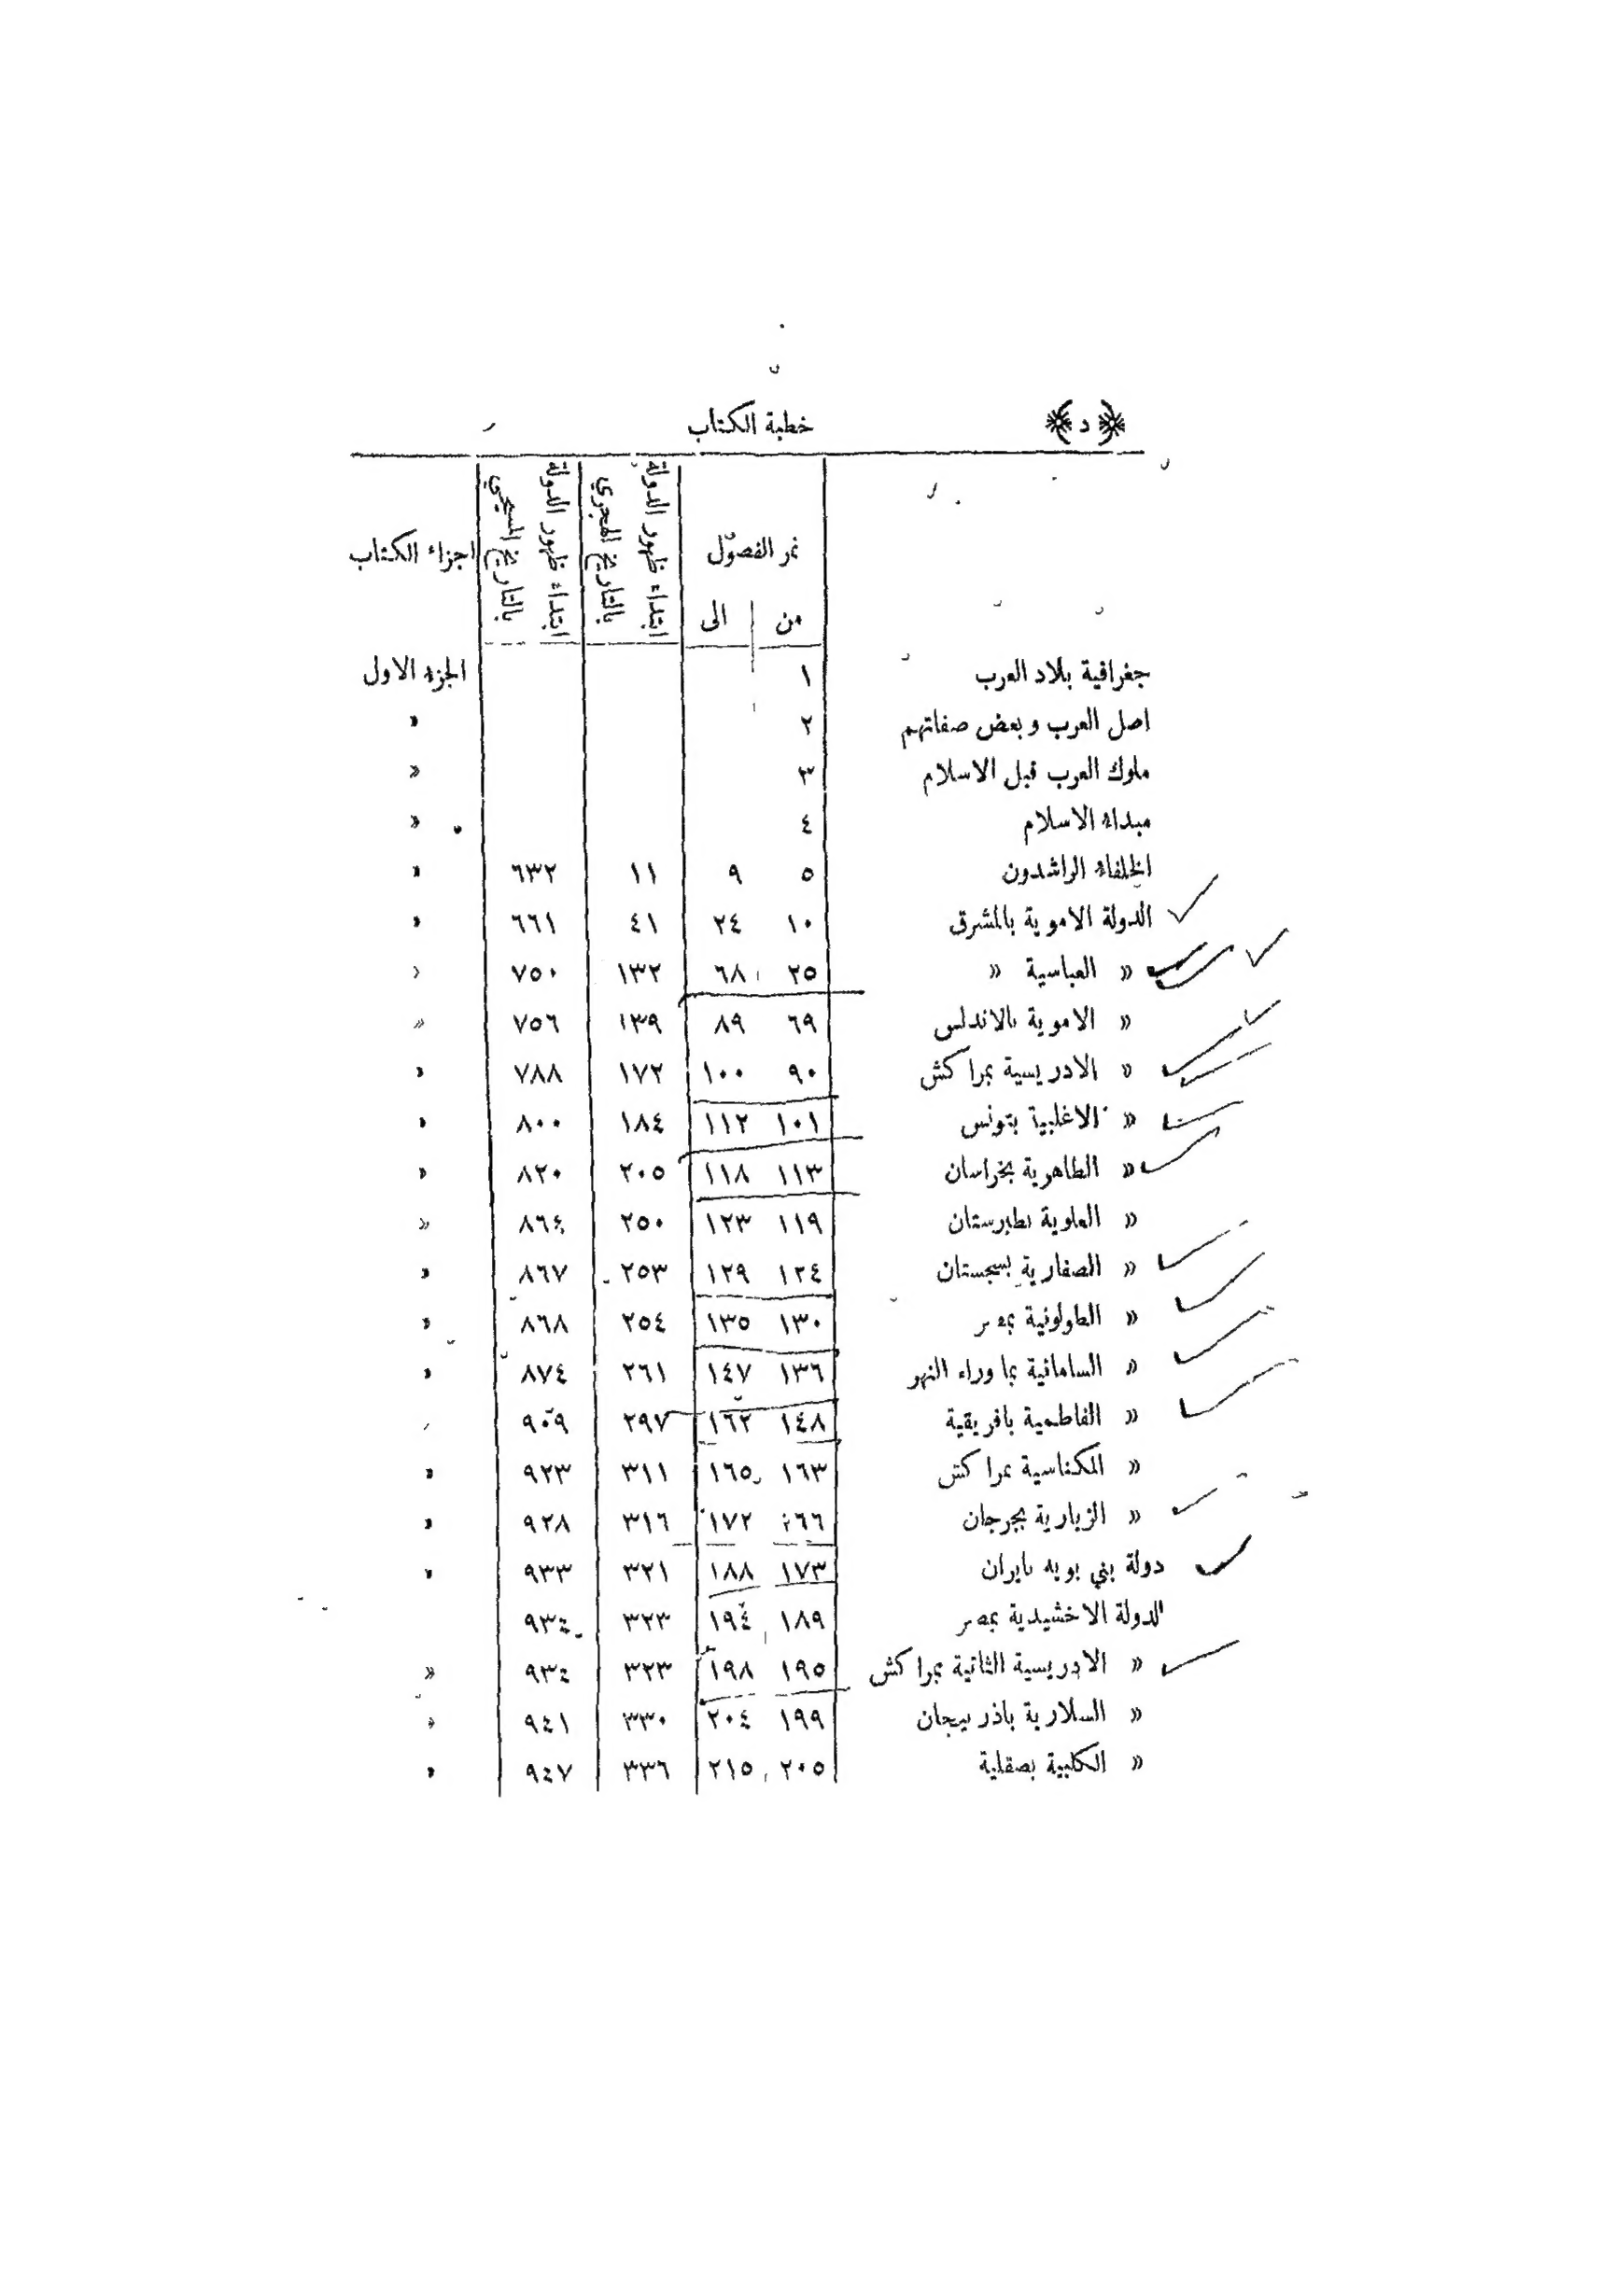 ﴿ د ﴾ خطبة الكتاب
نمر الفصول من الى ابتداء ظهور الدولة بالتاريخ الهجري ابتداء ظهور الدولة بالتاريخ المسيحي اجزاء الكتاب
جغرافية بلاد العرب ١ الجزء الاول
اصل العرب وبعض صفاتهم ٢ »
ملوك العرب قبل الاسلام ٣ »
مبداء الاسلام ٤ »
الخلفاء الراشدون ٥ ٩ ١١ ٦٣٢ »
الدولة الاموية بالمشرق ١٠ ٢٤ ٤١ ٦٦١ »
» العباسية » ٢٥ ٦٨ ١٣٢ ٧٥٠ »
» الاموية بالاندلس ٦٩ ٨٩ ١٣٩ ٧٥٦ »
» الادريسية بمراكش ٩٠ ١٠٠ ١٧٢ ٧٨٨ »
» الاغلبية بتونس ١٠١ ١١٢ ١٨٤ ٨٠٠ »
» الطاهرية بخراسان ١١٣ ١١٨ ٢٠٥ ٨٢٠ »
» العلوية بطبرستان ١١٩ ١٢٣ ٢٥٠ ٨٦٤ »
» الصفارية بسجستان ١٢٤ ١٢٩ ٢٥٣ ٨٦٧ »
» الطولونية بمصر ١٣٠ ١٣٥ ٢٥٤ ٨٦٨ »
» السامانية بما وراء النهر ١٣٦ ١٤٧ ٢٦١ ٨٧٤ »
» الفاطمية بافريقية ١٤٨ ١٦٢ ٢٩٧ ٩٠٩ »
» المكناسية بمراكش ١٦٣ ١٦٥ ٣١١ ٩٢٣ »
» الزيارية بجرجان ١٦٦ ١٧٢ ٣١٦ ٩٢٨ »
دولة بني بويه بايران ١٧٣ ١٨٨ ٣٢١ ٩٣٣ »
الدولة الاخشيدية بمصر ١٨٩ ١٩٤ ٣٢٣ ٩٣٤
» الادريسية الثانية بمراكش ١٩٥ ١٩٨ ٣٢٣ ٩٣٤ »
» السلارية باذربيجان ١٩٩ ٢٠٤ ٣٣٠ ٩٤١ »
» الكلبية بصقلية ٢٠٥ ٢١٥ ٣٣٦ ٩٤٧ »